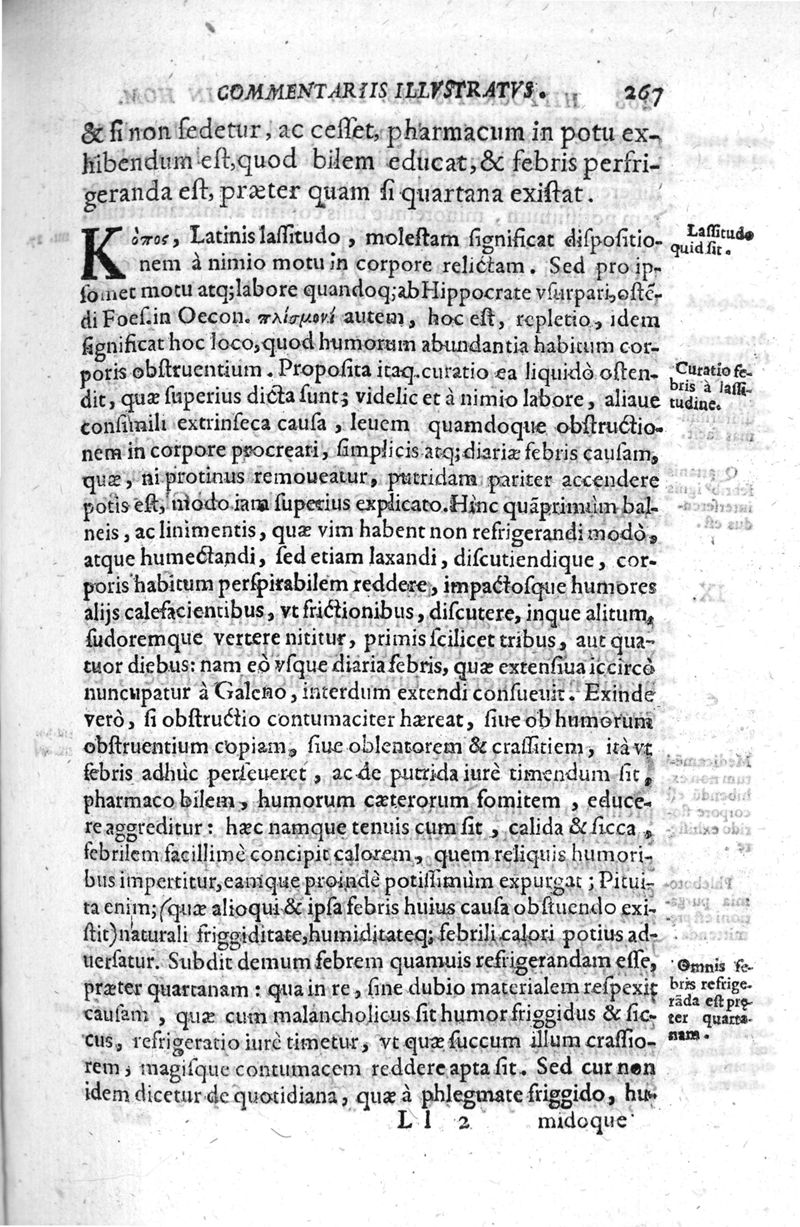 COMMENTARIIS ILLVSTRATVS. 267
& ſi non ſedetur, ac ceſſet, pharmacum in potu ex-
hibendum eſt, quod bilem educat, & febris perfri-
geranda eſt, præter quam ſi quartana exiſtat.
Κόπος, Latinis laſſitudo, moleſtam ſignificat diſpoſitio-
nem à nimio motu in corpore relictam. Sed pro ip-
ſomet motu atq; labore quandoq; ab Hippocrate vſurpari, oſtẽ-
di Foeſ. in Oecon. πλίσμονί autem, hoc eſt, repletio, idem
ſignificat hoc loco, quod humorum abundantia habitum cor-
poris obſtruentium. Propoſita itaq. curatio ea liquidò oſten-
dit, quæ ſuperius dicta ſunt; videlicet à nimio labore, aliaue
conſimili extrinſeca cauſa, leuem quamdoque obſtructio-
nem in corpore procreari, ſimplicis atq; diariæ febris cauſam,
quæ, ni protinus remoueatur, putridam pariter accendere
potis eſt, modo iam ſuperius explicato. Hinc quãprimùm bal-
neis, ac linimentis, quæ vim habent non refrigerandi modò,
atque humectandi, ſed etiam laxandi, diſcutiendique, cor-
poris habitum perſpirabilem reddere, impactoſque humores
alijs calefacientibus, vt frictionibus, diſcutere, inque alitum,
ſudoremque vertere nititur, primis ſcilicet tribus, aut qua-
tuor diebus: nam eò vſque diaria febris, quæ extenſiua iccircò
nuncupatur à Galeno, interdum extendi conſueuit. Exinde
verò, ſi obſtructio contumaciter hæreat, ſiue ob humorum
obſtruentium copiam, ſiue oblentorem & craſſitiem, ità vt
febris adhùc perſeueret, ac de putrida iurè timendum ſit,
pharmaco bilem, humorum cæterorum fomitem, educe-
re aggreditur: hæc namque tenuis cum ſit, calida & ſicca,
febrilem facillimè concipit calorem, quem reliquis humori-
bus impertitur, eamque proindè potiſſimùm expurgat; Pitui-
ta enim; (quæ alioqui & ipſa febris huius cauſa obſtuendo exi-
ſtit) naturali friggiditate, humiditateq; febrili calori potius ad-
uerſatur. Subdit demum febrem quamuis refrigerandam eſſe,
præter quartanam: qua in re, ſine dubio materialem reſpexit
cauſam, quæ cum malancholicus ſit humor friggidus & ſic-
cus, refrigeratio iurè timetur, vt quæ ſuccum illum craſſio-
rem, magiſque contumacem reddere apta ſit. Sed cur non
idem dicetur de quotidiana, quæ à phlegmate friggido, hu-
Ll 2 midoque
Laſſitudo
quid ſit.
Curatio fe-
bris à laſſi-
tudine.
Omnis fe-
bris refrige-
rãda eſt pre-
ter quarta-
nam.